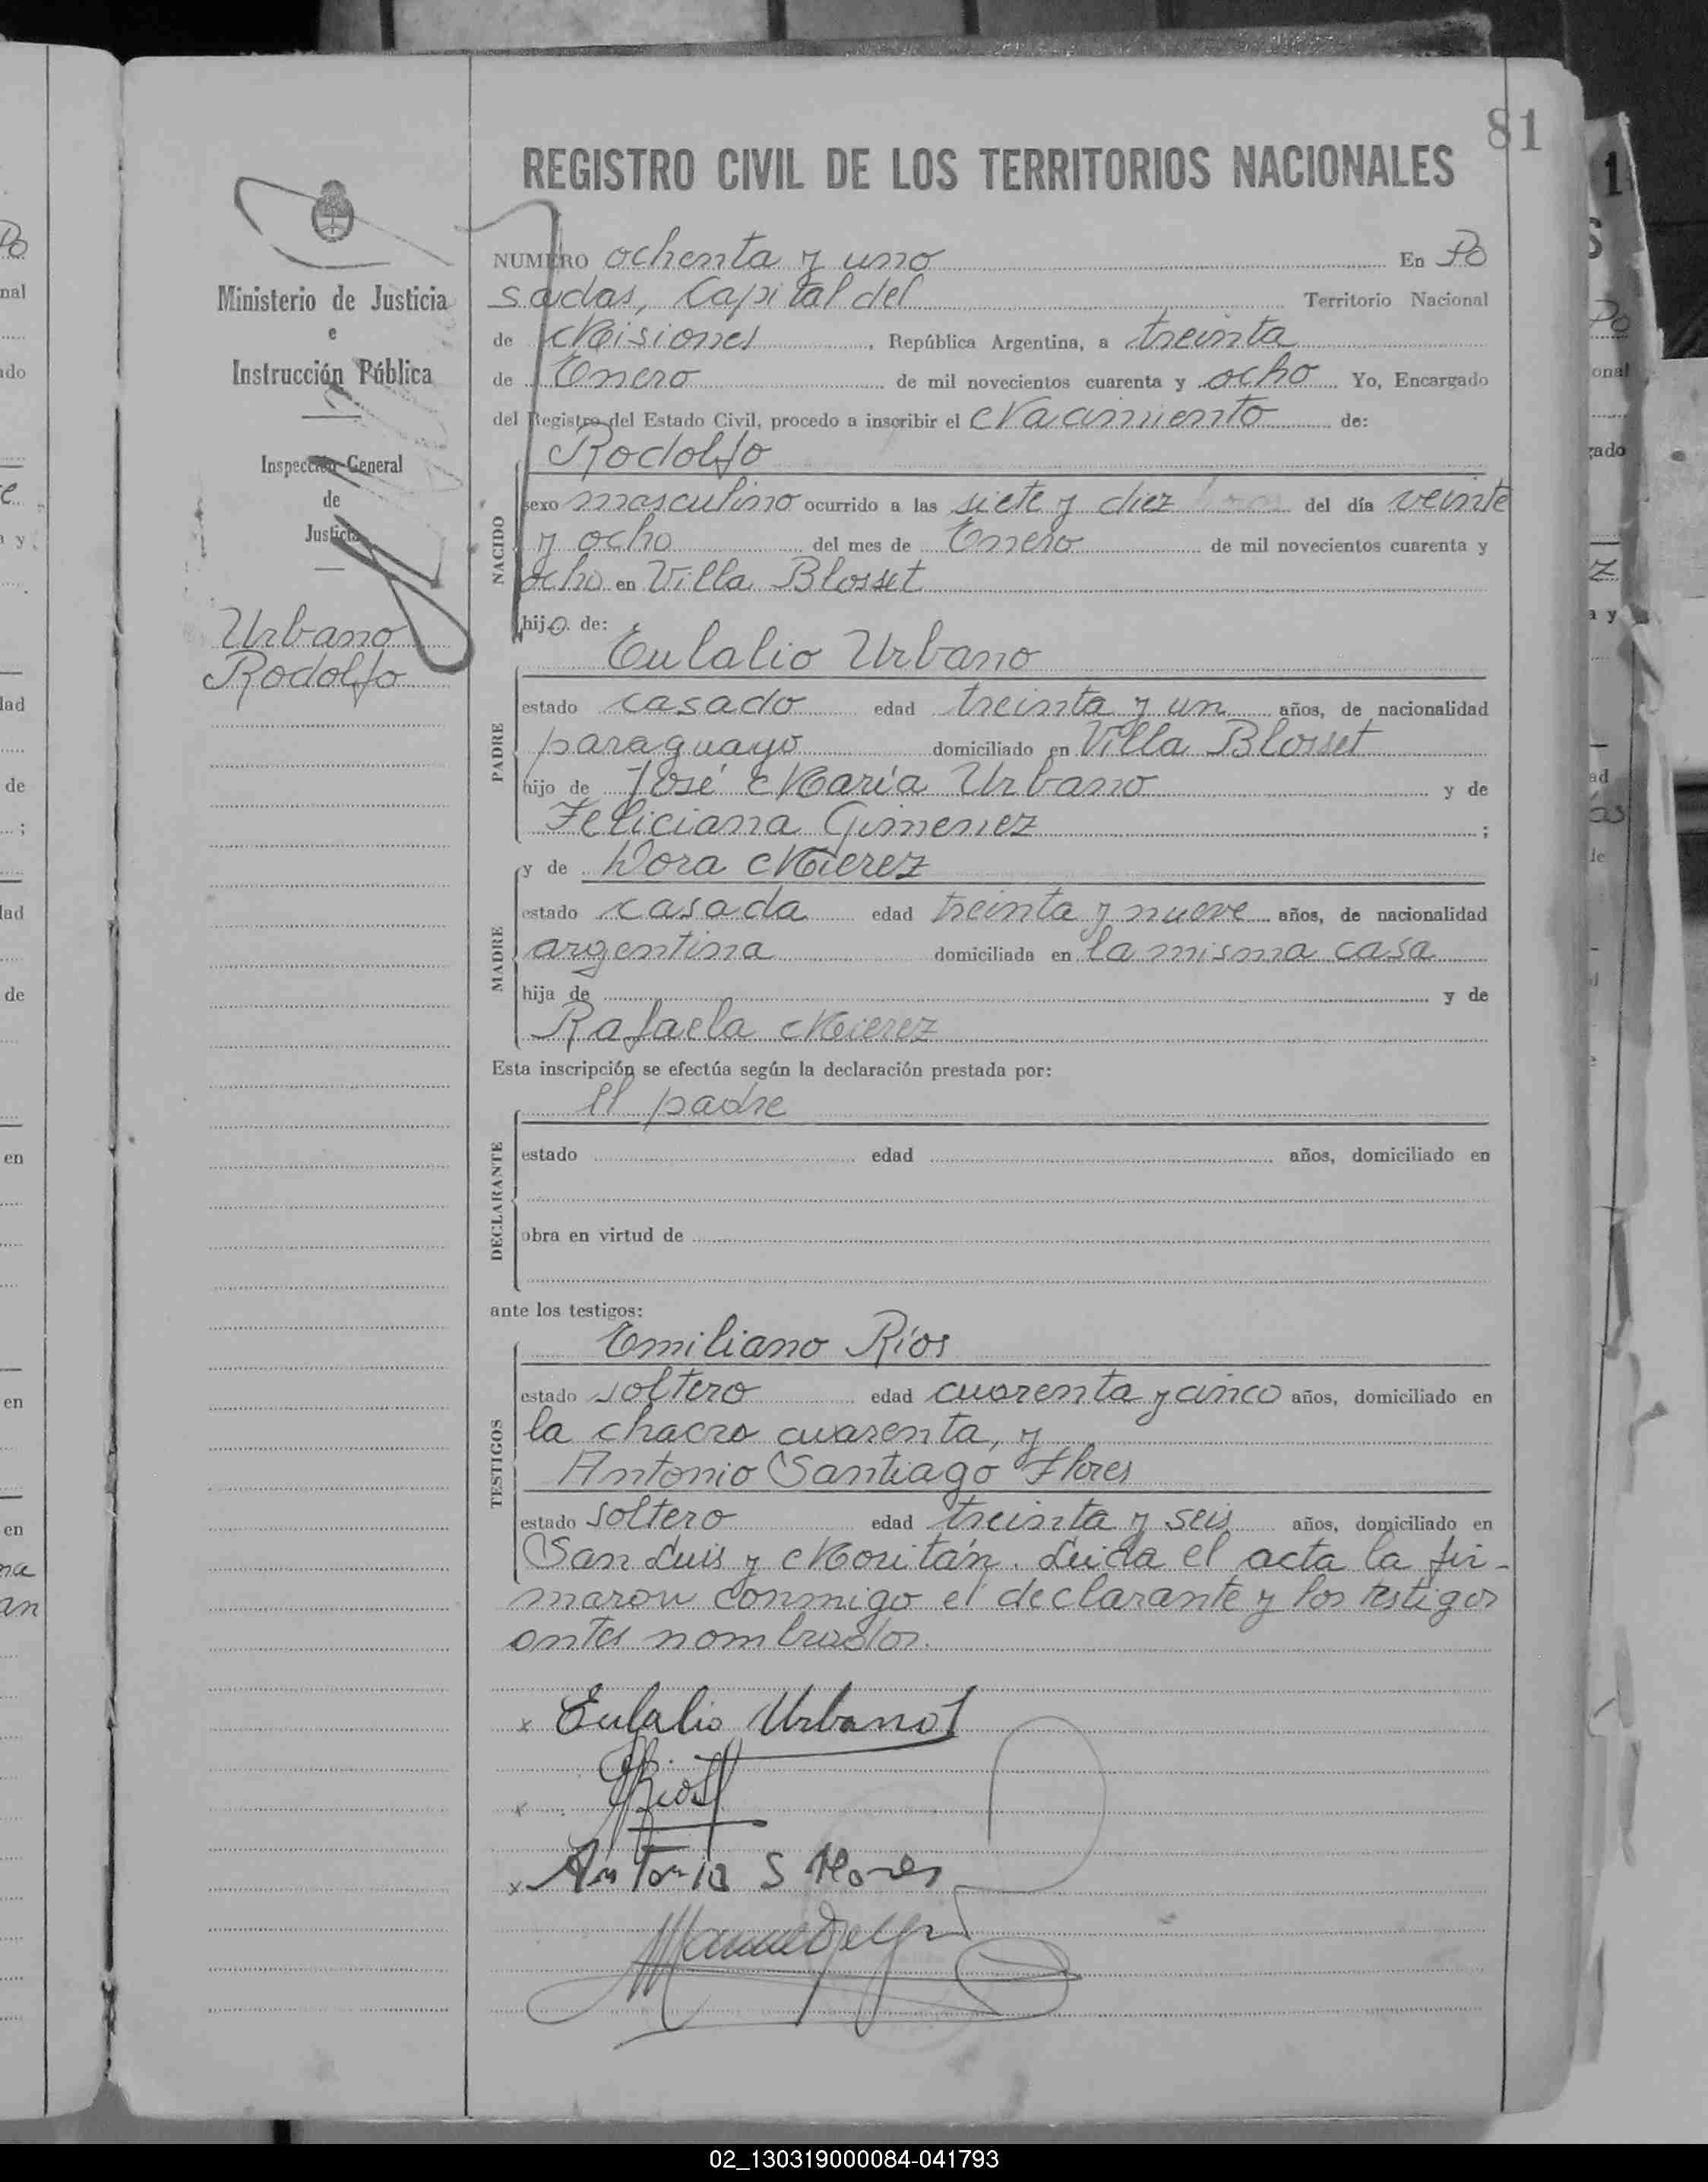 81
REGISTRO CIVIL DE LOS TERRITORIOS NACIONALES
Ministerio de Justicia
e
Instrucción Pública
Inspección General
de
Justicia
Urbano
Rodolfo
NUMERO ochenta y uno En Po
sadas, Capital del Territorio Nacional
de Misiones, República Argentina, a treinta
de Enero de mil novecientos cuarenta y ocho Yo, Encargado
del Registro del Estado Civil, procedo a inscribir el Nacimiento de:
Rodolfo
NACIDO
sexo masculino ocurrido a las siete y diez horas del día veinte
y ocho del mes de Enero de mil novecientos cuarenta y
ocho en Villa Blosset
hijo de:
Eulalio Urbano
PADRE
estado casado edad treinta y un años, de nacionalidad
paraguayo domiciliado en Villa Blosset
hijo de José María Urbano y de
Feliciana Gimenez ;
y de Dora Mierez
MADRE
estado casada edad treinta y nueve años, de nacionalidad
argentina domiciliada en la misma casa
hija de y de
Rafaela Mierez
Esta inscripción se efectúa según la declaración prestada por:
El padre
DECLARANTE
estado edad años, domiciliado en
obra en virtud de
ante los testigos:
Emiliano Ríos
TESTIGOS
estado soltero edad cuarenta y cinco años, domiciliado en
la chacra cuarenta, y
Antonio Santiago Flores
estado soltero edad treinta y seis años, domiciliado en
San Luis y Moritán. Leida el acta la fir-
maron conmigo el declarante y los testigos
antes nombrados.
x Eulalio Urbano
x ERios
x Antonio S Flores
02_130319000084-041793